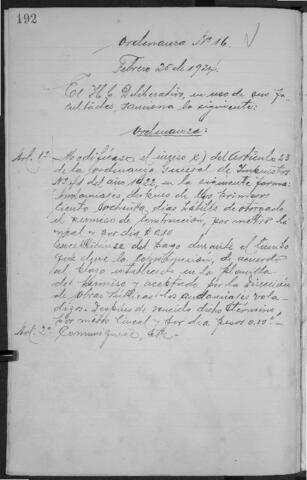 192
Ordenanza Nº 16.
Febrero 26 de 1924.
El H. C. Deliberativo, en uso de sus fa-
cultades, sanciona la siguiente:
Ordenanza:
Art. 1º Modifícase el inciso e) del Artículo 23
de la Ordenanza General de Impuestos
del año 1922, en la siguiente forma:
Andamiales después de los primeros
ciento ochenta días hábiles de otorgado
el permiso de construcción, por metro li-
neal y por día $ 0.10
del pago durante el tiempo
que dure la construcción, de acuerdo
al plazo establecido en la planilla
del permiso y aceptado por la Dirección
de Obras Públicas los andamiales vola-
dizos. Después de vencido dicho término
por metro lineal y por día pesos 0.10.
Art. 2º Comuníquese, etc.